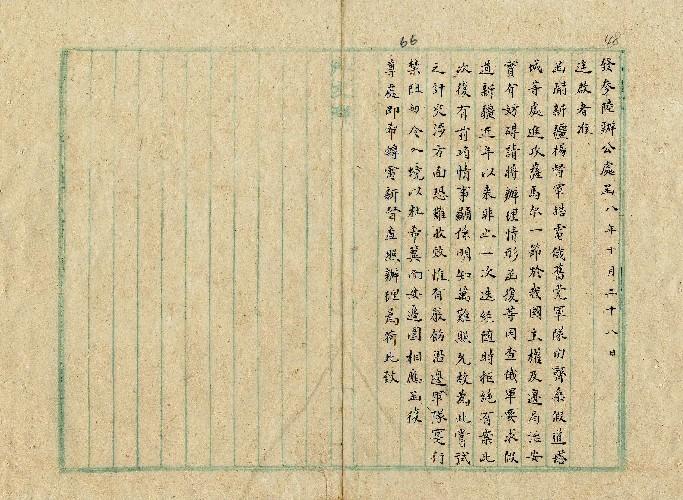 66
48
發參陸辦公處函 八年十月二十八日
逕啟者准
函開新疆楊督軍皓電俄舊党軍隊由齊桑假道塔
城等處進攻薩馬尔一節於我國主權及邊局治安
實有妨碍請將辦理情形函復等因查俄軍要求假
道新疆近年以来非止一次迭經隨時拒絕有案此
次復有前項情事顯係明知萬難照允故為此嘗試
之計交涉方面恐難收效惟有嚴飭沿邊軍隊实行
禁阻勿令入境以杜希冀而安邊圉相應函復
尊處即希轉電新督查照辦理為荷此致